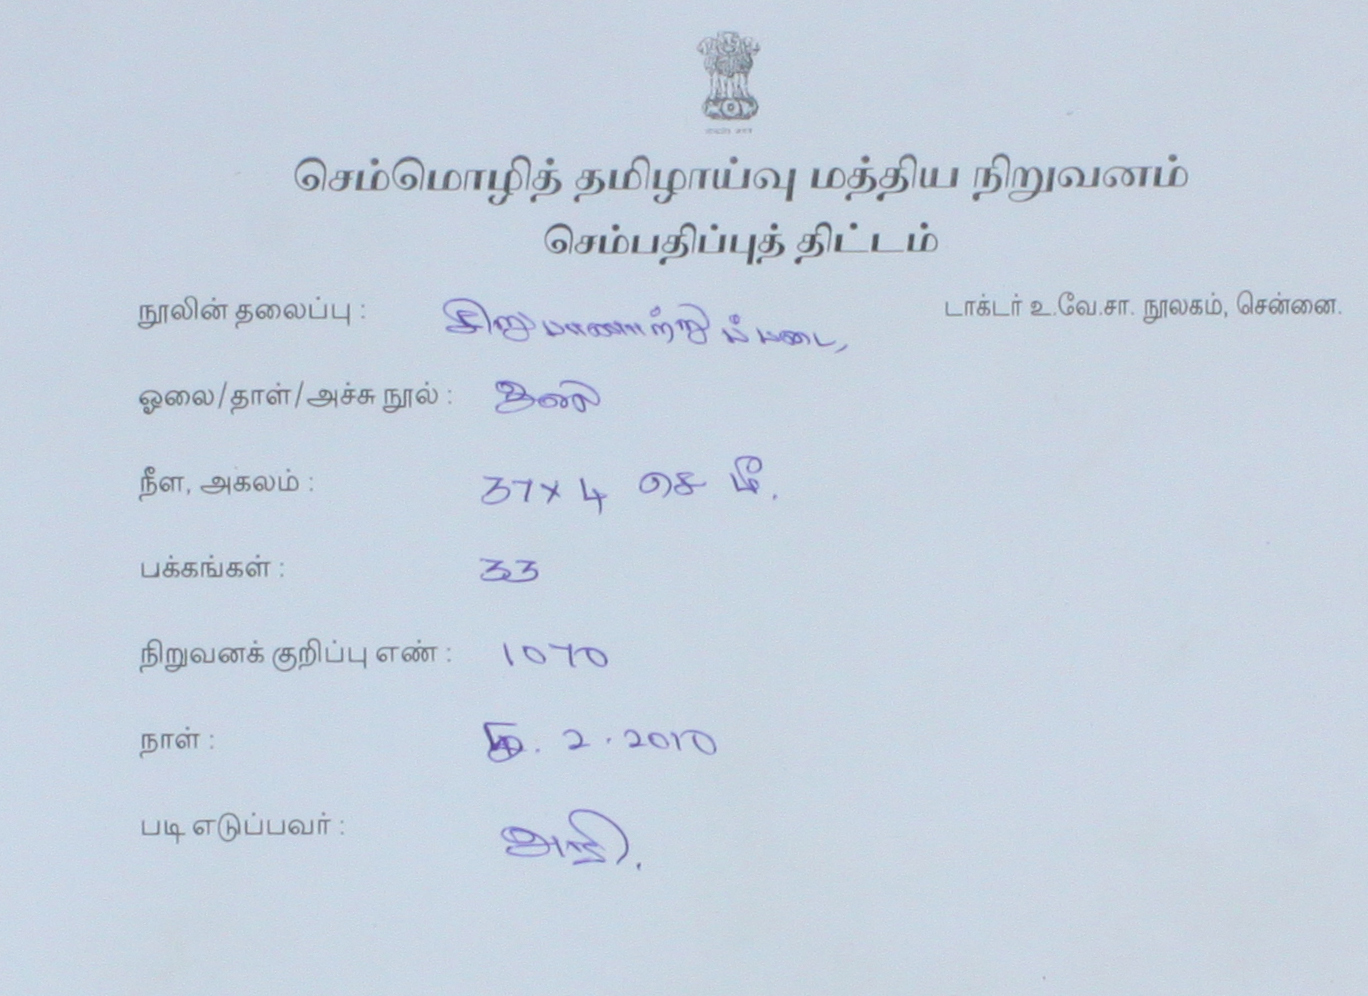 செம்மொழித் தமிழாய்வு மத்திய நிறுவனம்
செம்பதிப்புத் திட்டம்
டாக்டர் உ.வே.சா. நூலகம், சென்னை.
நூலின் தலைப்பு : சிறுபாணாற்றுப்படை,
ஓலை/தாள்/அச்சு நூல் : ஓலை
நீள, அகலம் : 37 x 4 செ மீ.
பக்கங்கள் : 33
நிறுவனக் குறிப்பு எண் : 1070
நாள் : . 2 . 2010
படி எடுப்பவர் :